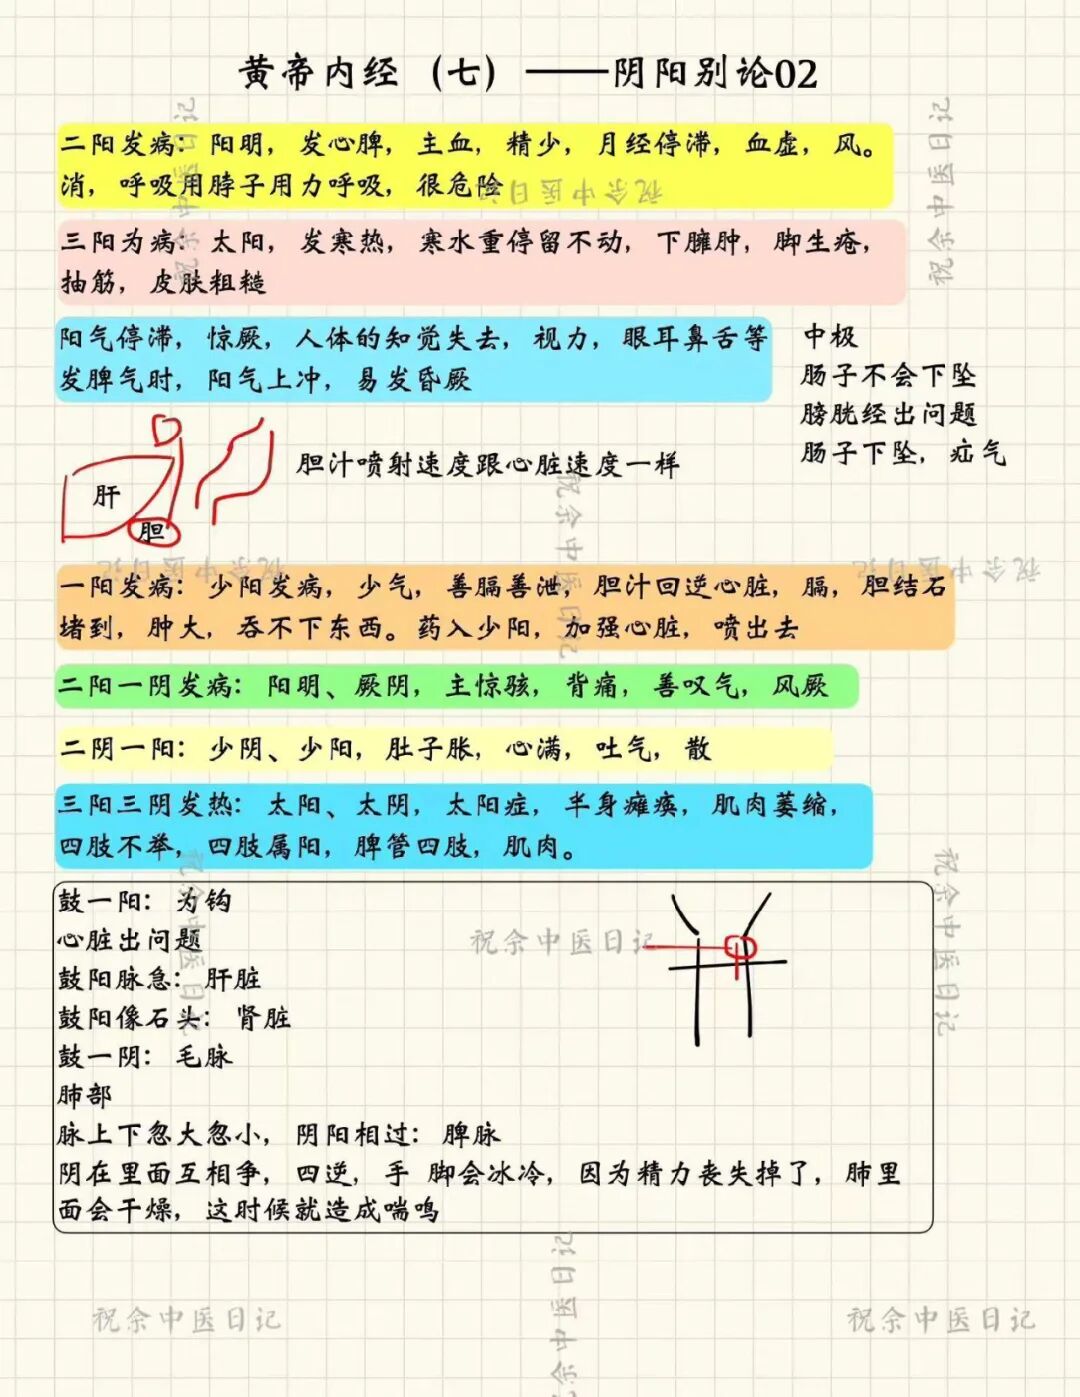 黄帝内经（七）——阴阳别论02
二阳发病：阳明，发心脾，主血，精少，月经停滞，血虚，风。
消，呼吸用脖子用力呼吸，很危险
三阳为病：太阳，发寒热，寒水重停留不动，下臃肿，脚生疮，
抽筋，皮肤粗糙
阳气停滞，惊厥，人体的知觉失去，视力，眼耳鼻舌等
发脾气时，阳气上冲，易发昏厥
中极
肠子不会下坠
膀胱经出问题
肠子下坠，疝气
肝
胆
胆汁喷射速度跟心脏速度一样
一阳发病：少阳发病，少气，善膈善泄，胆汁回逆心脏，膈，胆结石
堵到，肿大，吞不下东西。药入少阳，加强心脏，喷出去
二阳一阴发病：阳明、厥阴，主惊骇，背痛，善叹气，风厥
二阴一阳：少阴、少阳，肚子胀，心满，吐气，散
三阳三阴发热：太阳、太阴，太阳症，半身瘫痪，肌肉萎缩，
四肢不举，四肢属阳，脾管四肢，肌肉。
鼓一阳：为钩
心脏出问题
鼓阳脉急：肝脏
鼓阳像石头：肾脏
鼓一阴：毛脉
肺部
脉上下忽大忽小，阴阳相过：脾脉
阴在里面互相争，四逆，手 脚会冰冷，因为精力丧失掉了，肺里
面会干燥，这时候就造成喘鸣
祝余中医日记
祝余中医日记
祝余中医日记
祝余中医日记
祝余中医日记
祝余中医日记
祝余中医日记
祝余中医日记
祝余中医日记
祝余中医日记
祝余中医日记
祝余中医日记
祝余中医日记